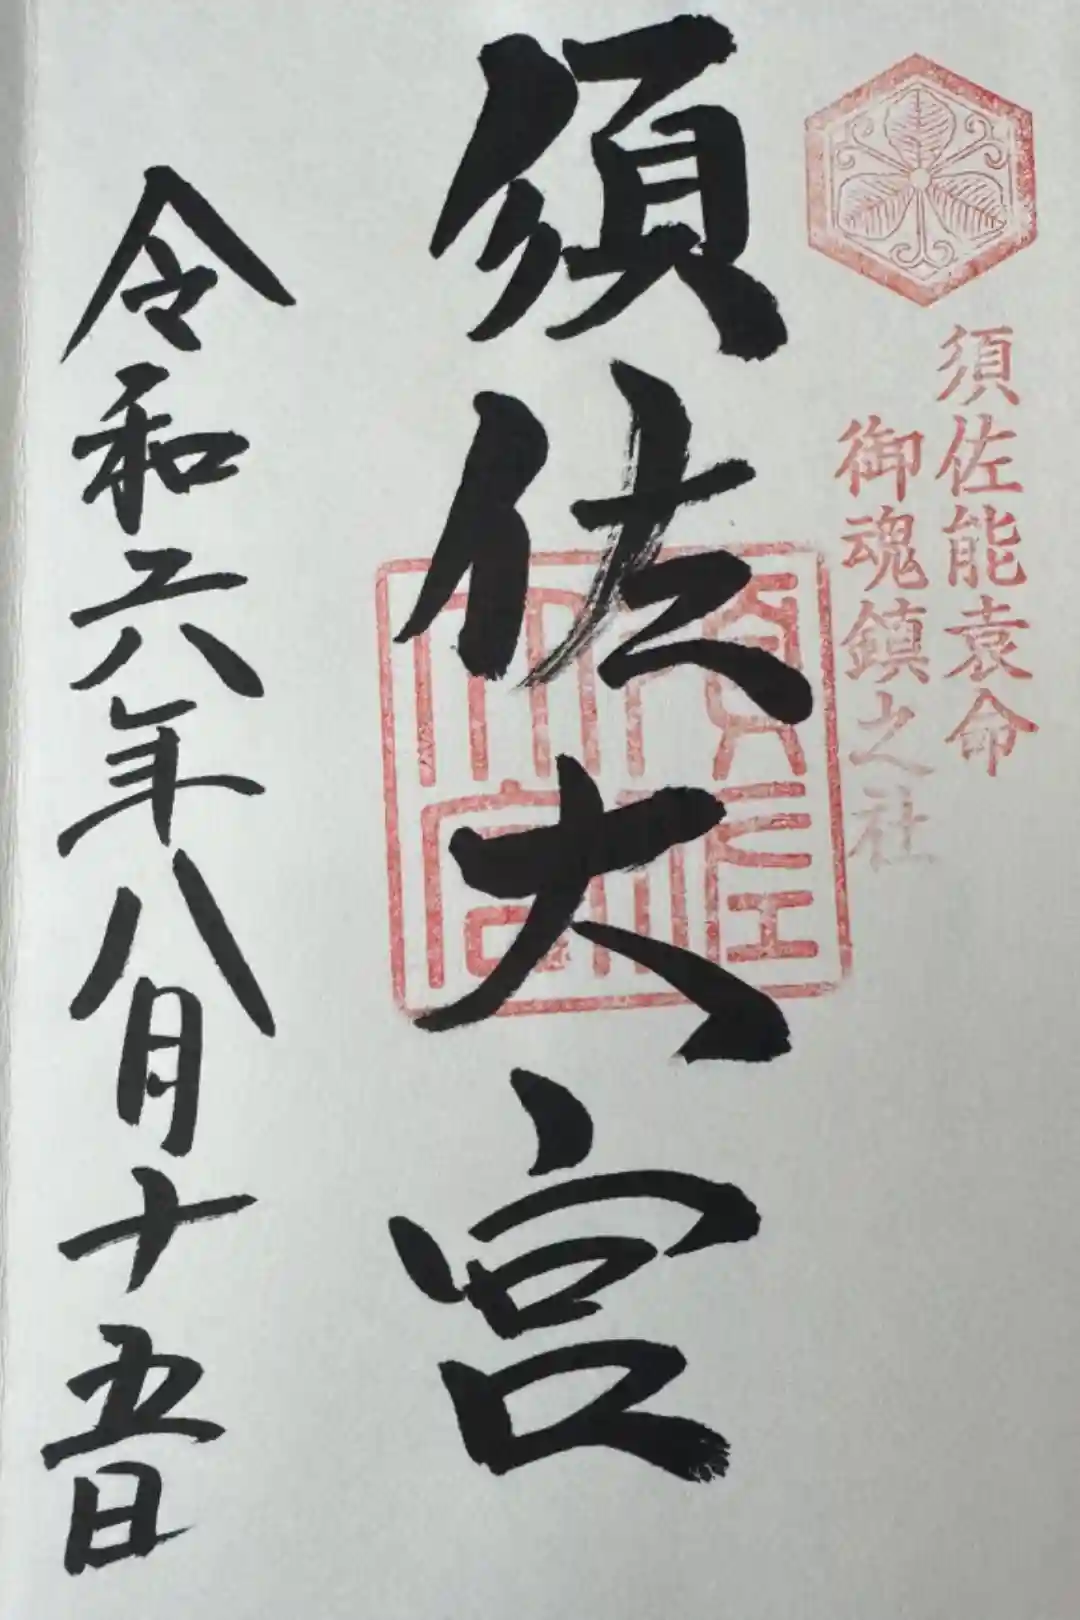 須佐能袁命
御魂鎮之社
須佐大宮
令和六年八月十五日